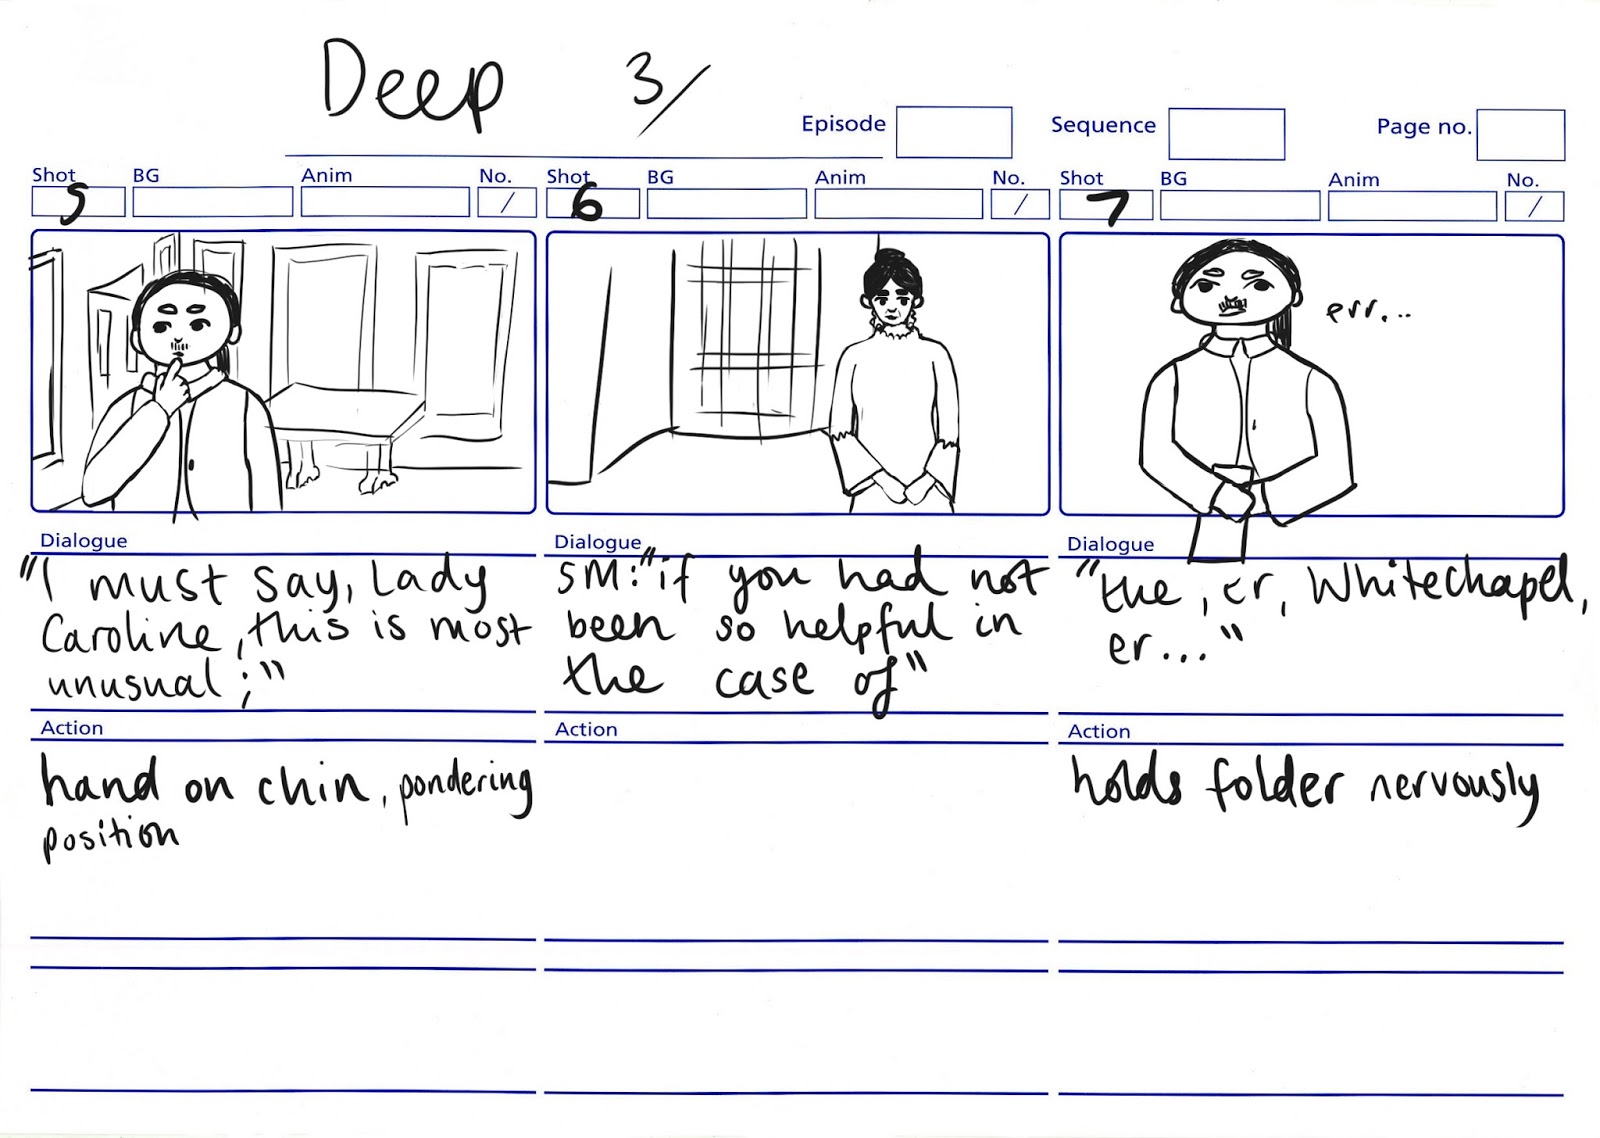 Deep 3/
Episode Sequence Page no.
Shot BG Anim No. Shot BG Anim No. Shot BG Anim No.
5 / 6 / 7 /
err...
Dialogue
"I must say, Lady
Caroline, this is most
unusual;"
Action
hand on chin, pondering
position
Dialogue
SM: "if you had not
been so helpful in
the case of"
Action
Dialogue
"the, er, Whitechapel,
er..."
Action
holds folder nervously